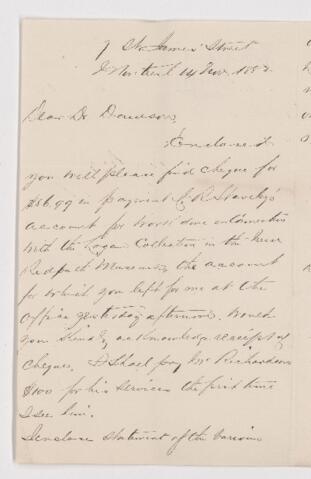 7 St. James Street
Montreal 14 Nov. 1882
Dear Dr Dawson,
Enclosed
you will please find cheque for
$86.99 in payment of R
account for work done in connection
with the Logan Collection in the
Redpath Museum, the account
for which you left for me at the
Office yesterday afternoon. Would
you kindly acknowledge receipt of
cheque. I shall pay Mr Richardson
$100 for his services the first time
I see him.
I enclose statement of the various